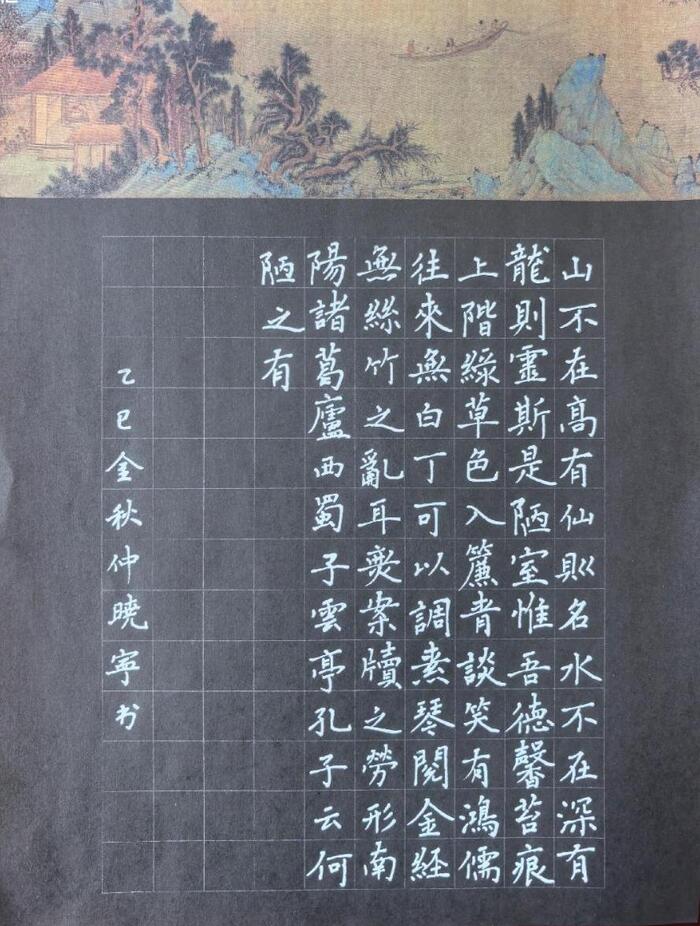 山不在高有仙則名水不在深有
龍則靈斯是陋室惟吾德馨苔痕
上階綠草色入簾青談笑有鴻儒
往來無白丁可以調素琴閱金經
無絲竹之亂耳無案牘之勞形南
陽諸葛廬西蜀子雲亭孔子云何
陋之有
乙巳金秋仲曉寧书